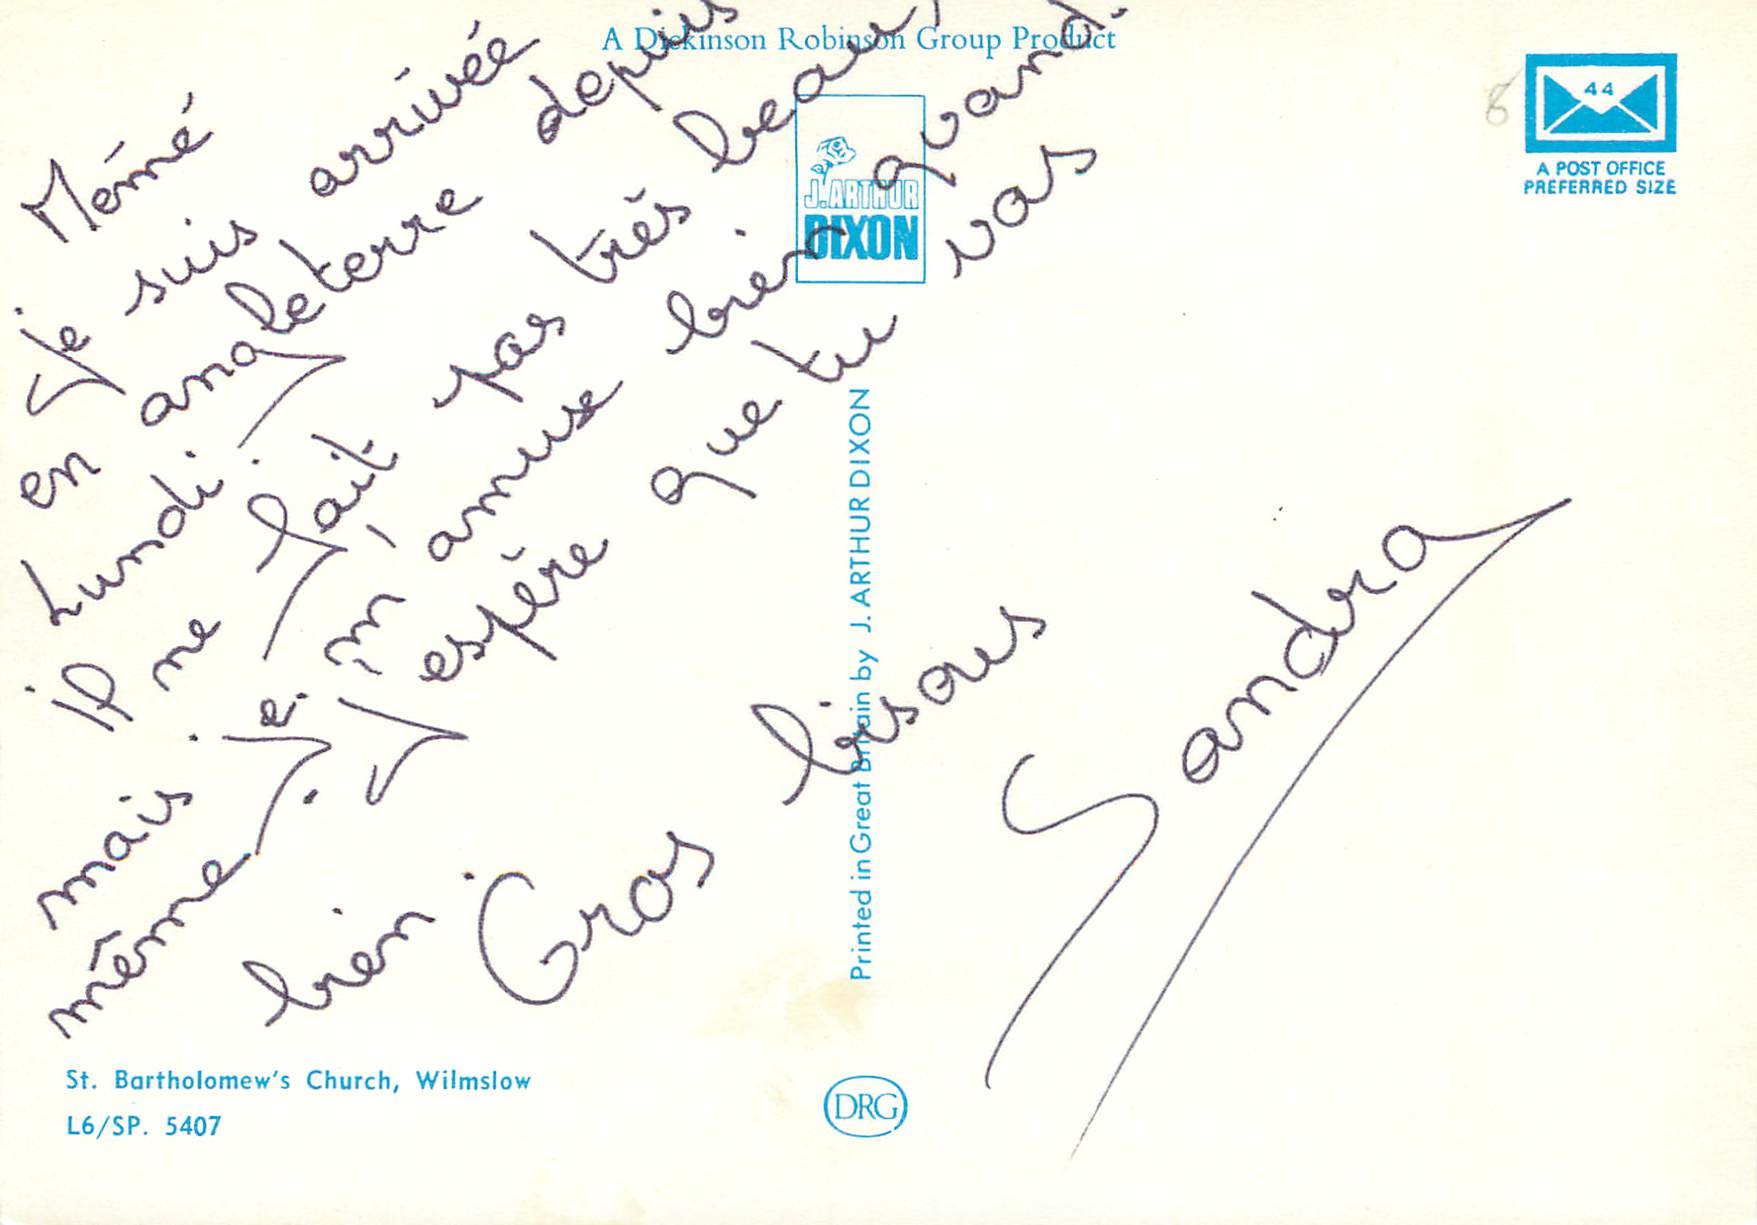 A Dickinson Robinson Group Product
44
A POST OFFICE
PREFERRED SIZE
6
J. ARTHUR
DIXON
Mémé
Je suis arrivée
en angleterre depuis
Lundi
il ne fait pas très beau,
mais je m'amuse bien quand
même. J'espère que tu vas
bien. Gros bisous
Sandra
Printed in Great Britain by J. ARTHUR DIXON
St. Bartholomew's Church, Wilmslow
L6/SP. 5407
DRG